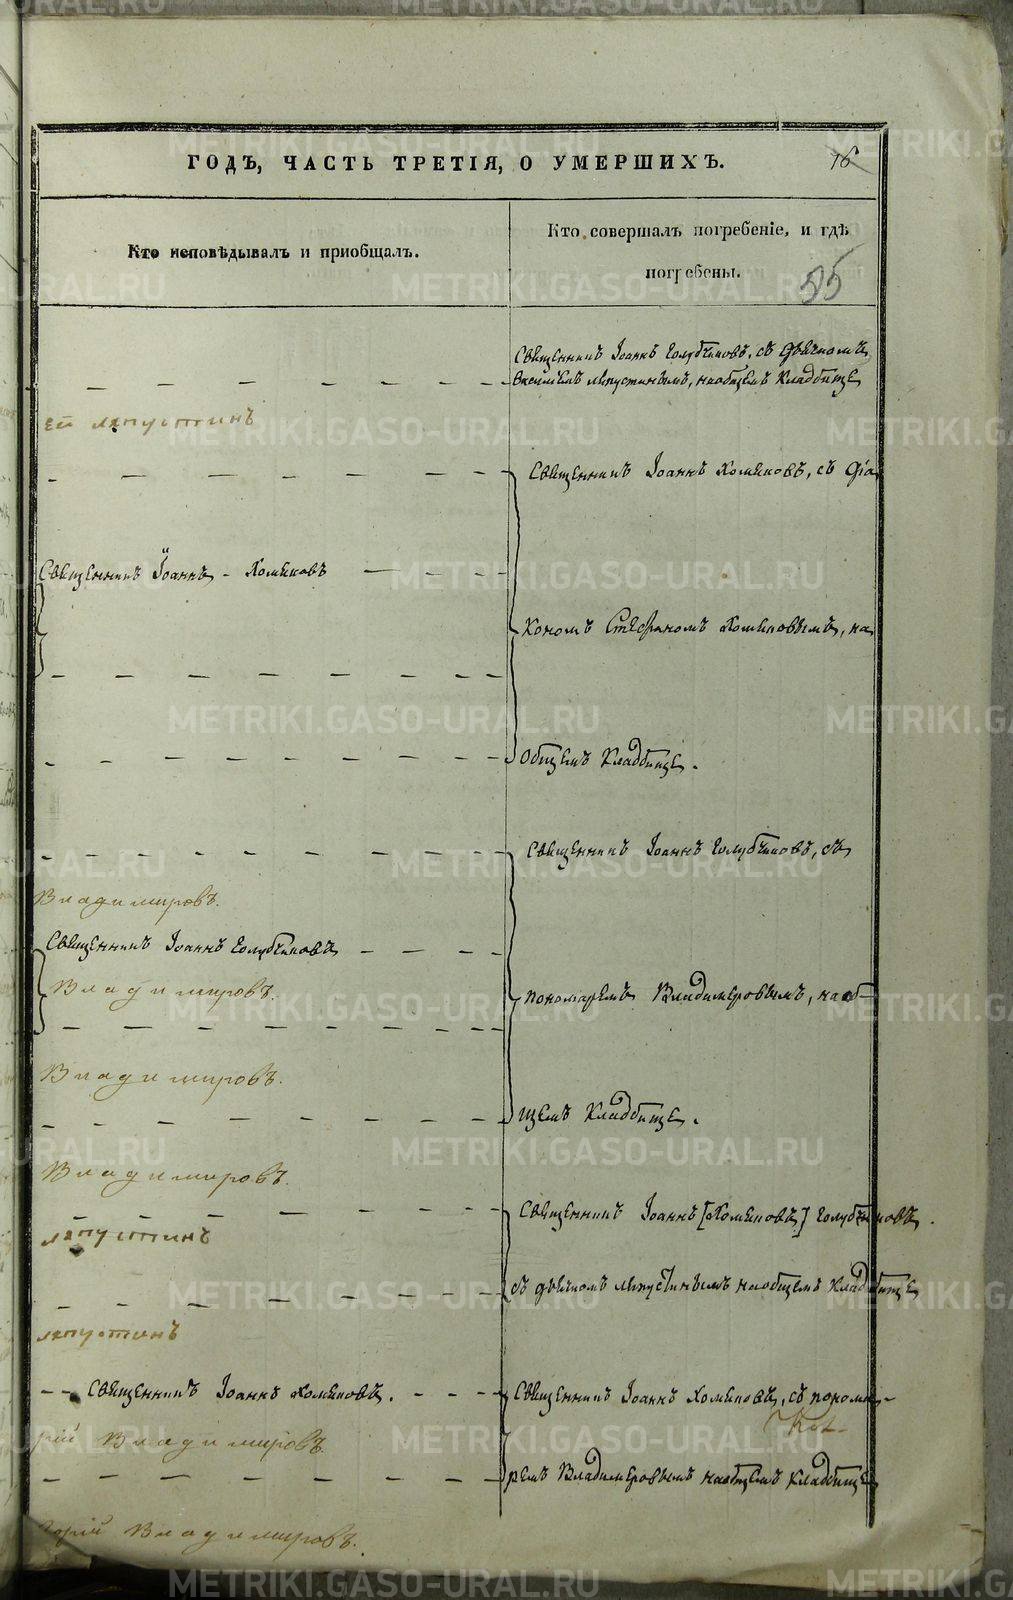 ГОДЪ, ЧАСТЬ ТРЕТІЯ, О УМЕРШИХЪ.
16
Кто исповѣдывалъ и пріобщалъ.
Кто совершалъ погребеніе, и гдѣ
погребены.
55
Священникъ Іоаннъ Голубчиковъ, съ дьячкомъ
Василіемъ Ляпустинымъ, на общемъ кладбище
ей Ляпустинъ
Священникъ Іоаннъ Хомяковъ, съ Діа
Священникъ Іоаннъ Хомяковъ
кономъ Стефаномъ Хомяковымъ, на
общемъ кладбище.
Священникъ Іоаннъ Голубчиковъ, съ
Владимировъ.
Священникъ Іоаннъ Голубчиковъ
Владимировъ.
пономаремъ Владимеровымъ, на об-
Владимировъ.
щемъ кладбище.
Владимировъ.
Священникъ Іоаннъ [Хомяковъ] Голубчиковъ.
Ляпустинъ
съ дьячкомъ Ляпустинымъ на общемъ кладбище
Ляпустинъ
Священникъ Іоаннъ Хомяковъ.
Священникъ Іоаннъ Хомяковъ, съ понома-
рій Владимировъ.
ремъ Владимеровымъ на общемъ кладбище
горій Владимировъ.
METRIKI.GASO-URAL.RU